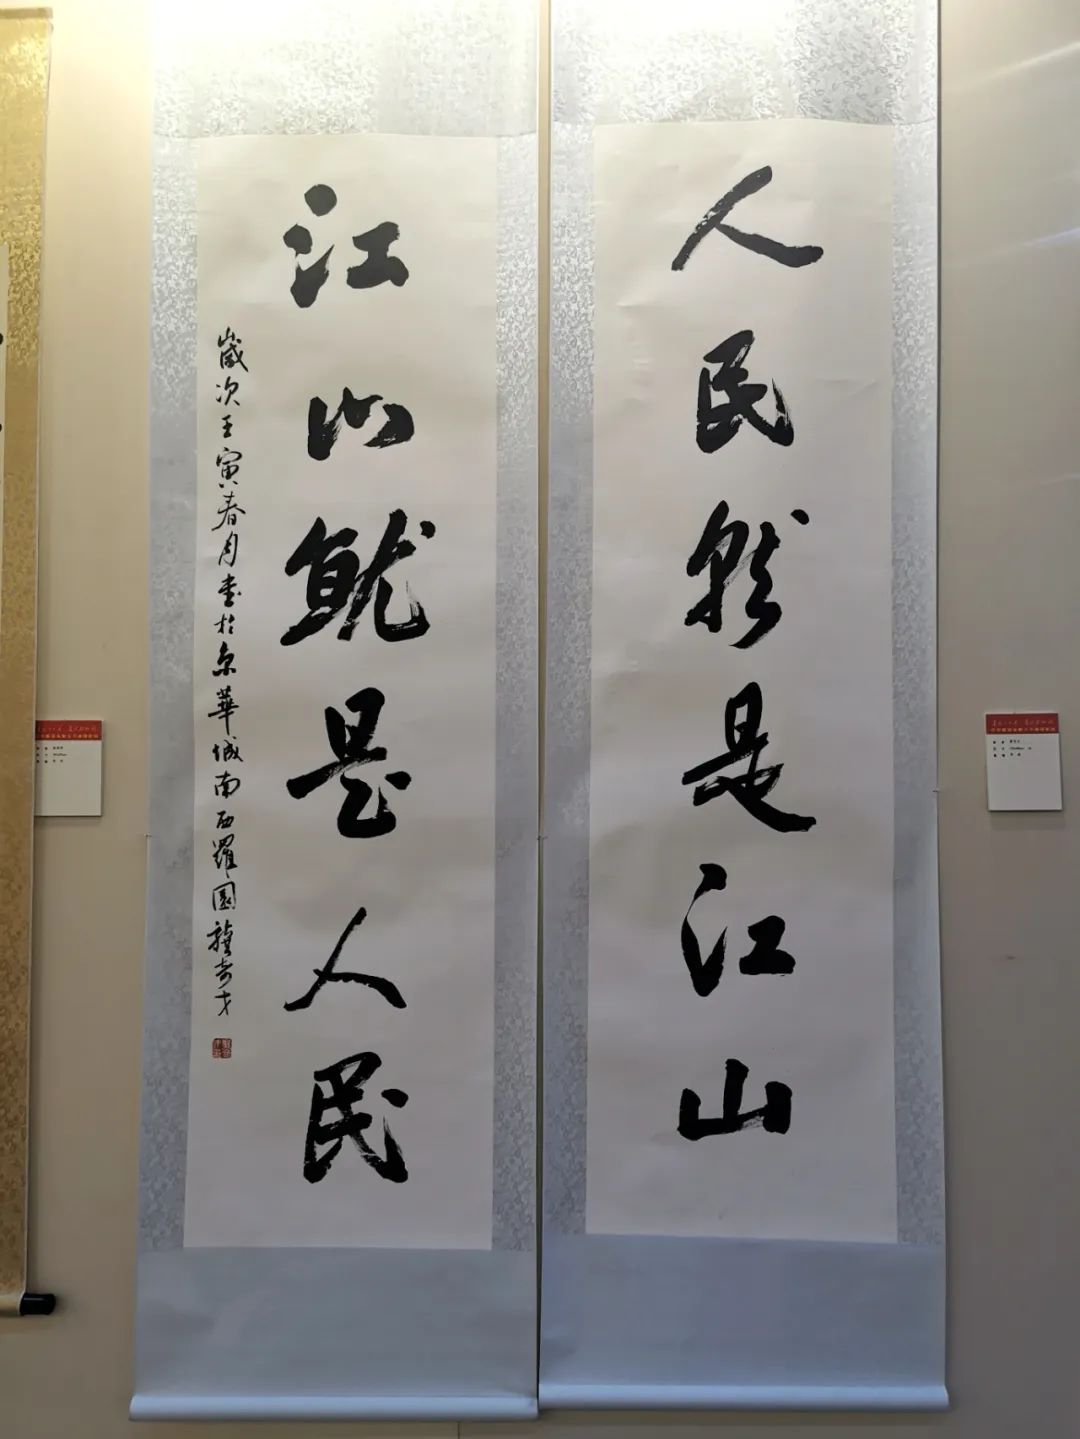 人民就是江山
江山就是人民
歲次壬寅春月書於京華城南西羅園龔奇才